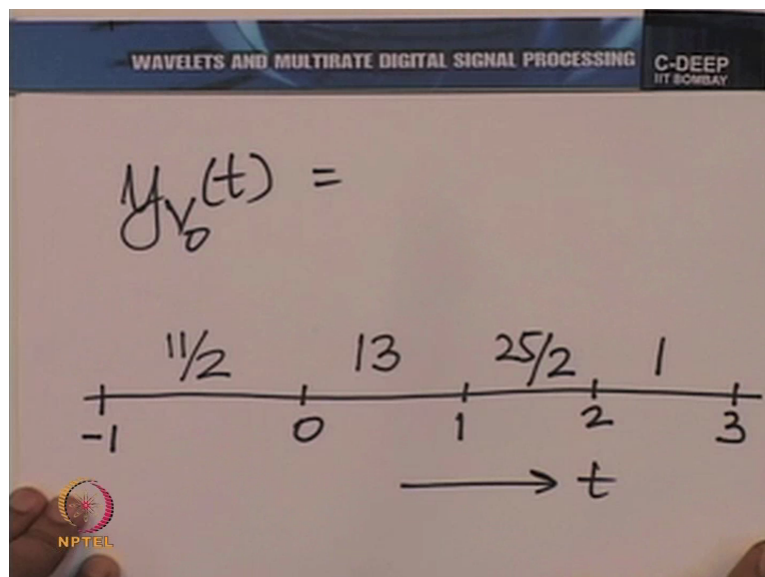 WAVELETS AND MULTIRATE DIGITAL SIGNAL PROCESSING
C-DEEP
IIT BOMBAY
y_{V_0}(t) =
11/2 13 25/2 1
-1 0 1 2 3
⟶ t
NPTEL